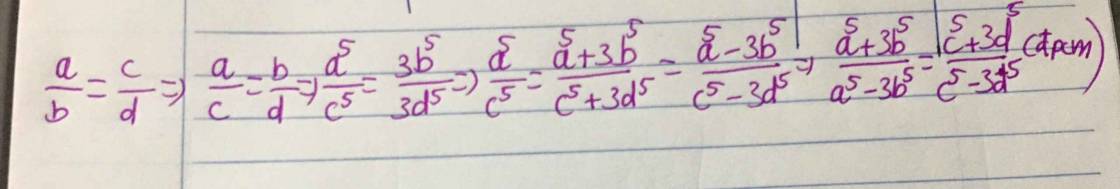 a/b = c/d => a/c = b/d => a⁵/c⁵ = 3b⁵/3d⁵ => a⁵/c⁵ = (a⁵+3b⁵)/(c⁵+3d⁵) = (a⁵-3b⁵)/(c⁵-3d⁵) => (a⁵+3b⁵)/(a⁵-3b⁵) = (c⁵+3d⁵)/(c⁵-3d⁵) (đpcm)